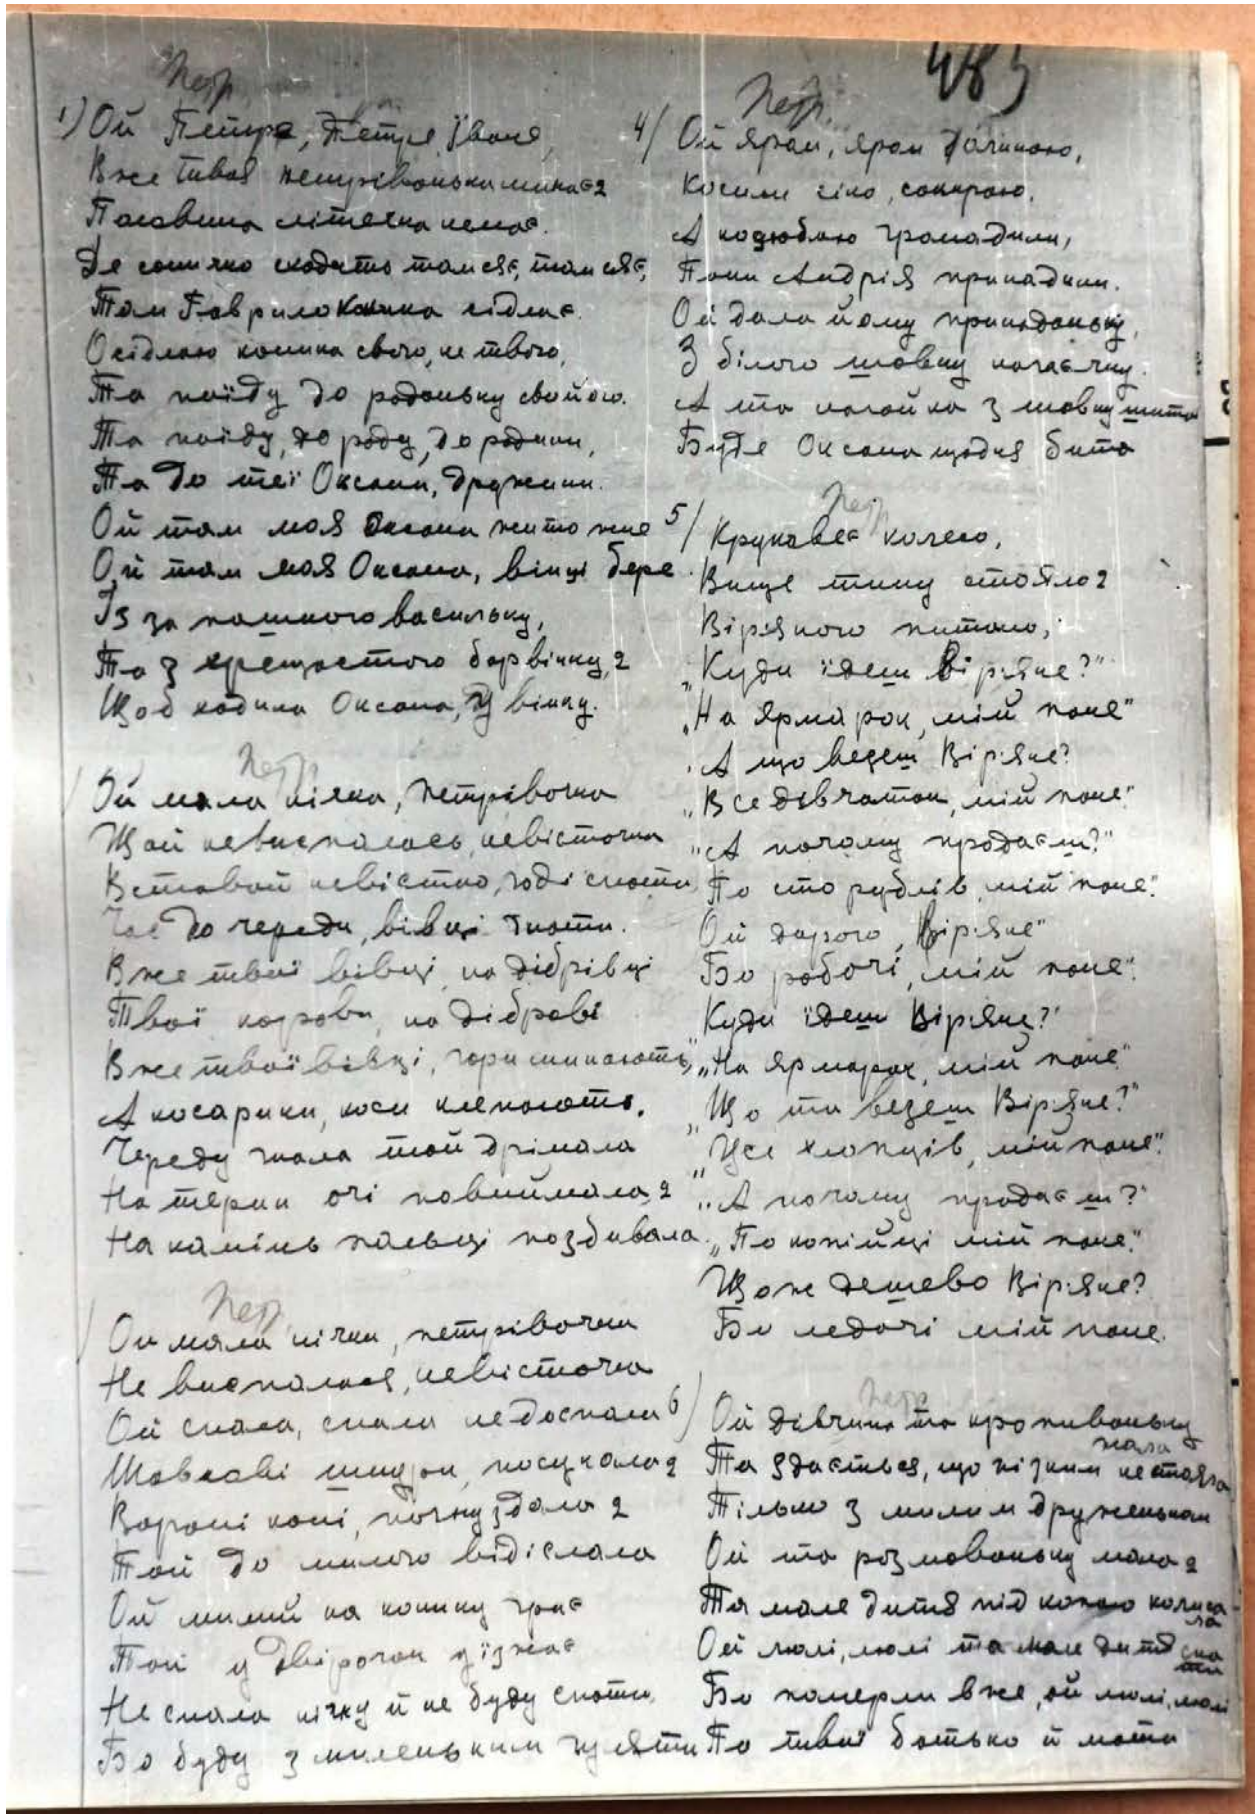 483
Петр.
1) Ой Петре, Петре, Іване,
Вже твоя петрівонька минає 2
Половина літечка немає.
Де сонечко сходить там сяє, там сяє,
Там Гаврило коника сідлає.
Осідлаю коника свого, не твого,
Та поїду до родоньку свойого.
Та поїду, до роду, до родини,
Та до теї Оксани, дружини.
Ой там моя Оксана жито жне
Ой там моя Оксана, вінці бере
Із за пашного васильку,
Та з хрещастого барвінку, 2
Щоб ходила Оксана, у вінку.
Петр.
Ой мала нічка, петрівочка
Щой невиспалась, невісточка
Вставай невістко, годі спати
Час до череди, вівці гнати.
Вже твої вівці, на дібрівці
Твої корови, на діброві
Вже твої вівці, гори минають,
А косарики, коси клепають.
Череду гнала той дрімала
На терни очі повиймала, 2
На камінь пальці позбивала.
Петр.
Ой мала нічка, петрівочка
Не виспалася, невісточка
Ой спала, спала недоспала
Шовкові шнури, посукала 2
Вороні коні, погнуздала 2
Той до милого відіслала
Ой милий на конику грає
Той у двірочок уїзжає
Не спала нічку й не буду спати,
Бо буду з миленьким гуляти
Петр.
4) Ой яром, яром долиною,
Косили сіно, сокирою.
А кодюбою громадили,
Поки Андрія принадили.
Ой дала йому принадоньку,
З білого шовку нагаєчку.
А та нагайка з шовку шита
Буде Оксана щодня бита
Петр.
5) Крукавеє колесо,
Вище тину стояло 2
Вір'яного питало,
"Куди їдеш Вір'яне?"
"На ярмарок, мій пане"
А що везеш Вір'яне?
"Все дівчаток, мій пане"
"А почому продаєш?"
По сто рублів, мій пане".
Ой дорого, Вір'яне"
Бо робочі, мій пане".
Куди їдеш Вір'яне?"
"На ярмарок, мій пане"
"Що ти везеш Вір'яне?"
"Усе хлопців, мій пане".
"А почому продаєш?"
"По копійці мій пане".
Що ж дешево Вір'яне?
Бо ледачі мій пане.
Петр
6) Ой дівчина та кропивоньку
жала
Та здається, що ні з ким не стояла
Тілько з милим дружоньком
Ой та розмовоньку мала 2
Та мале дитя під копою колиса
ла
Ой люлі, люлі та мале дитя спа
ти
Бо померли вже, ой люлі, люлі
То твої батько й мати